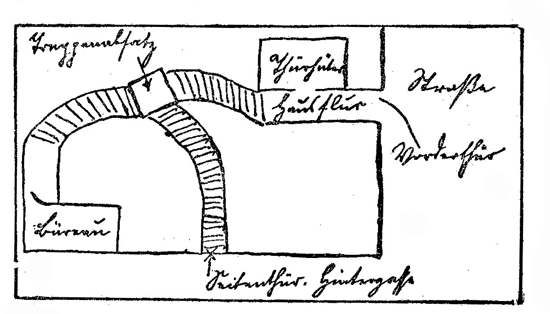 Treppenabsatz
Thürhüter
Hausflur
Straße
Vorderthür
Büreau
Seitenthür. Hintergasse